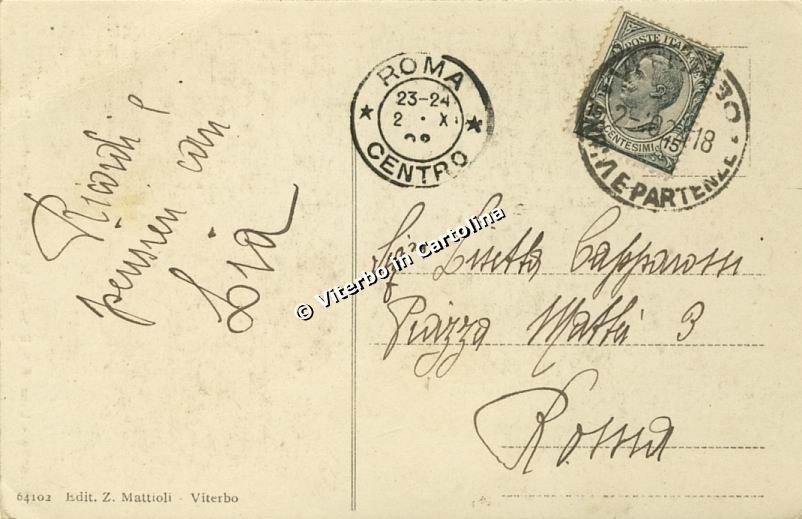 Ricordi e
pensieri cari
Lia
ROMA
23-24
2 · XI
CENTRO
POSTE ITALIANE
CENTESIMI 15
18
ARRIVI E PARTENZE
© Viterbo in Cartolina
Sig.na Lisetta Capparossi
Piazza Mattei 3
Roma
64102 Edit. Z. Mattioli - Viterbo